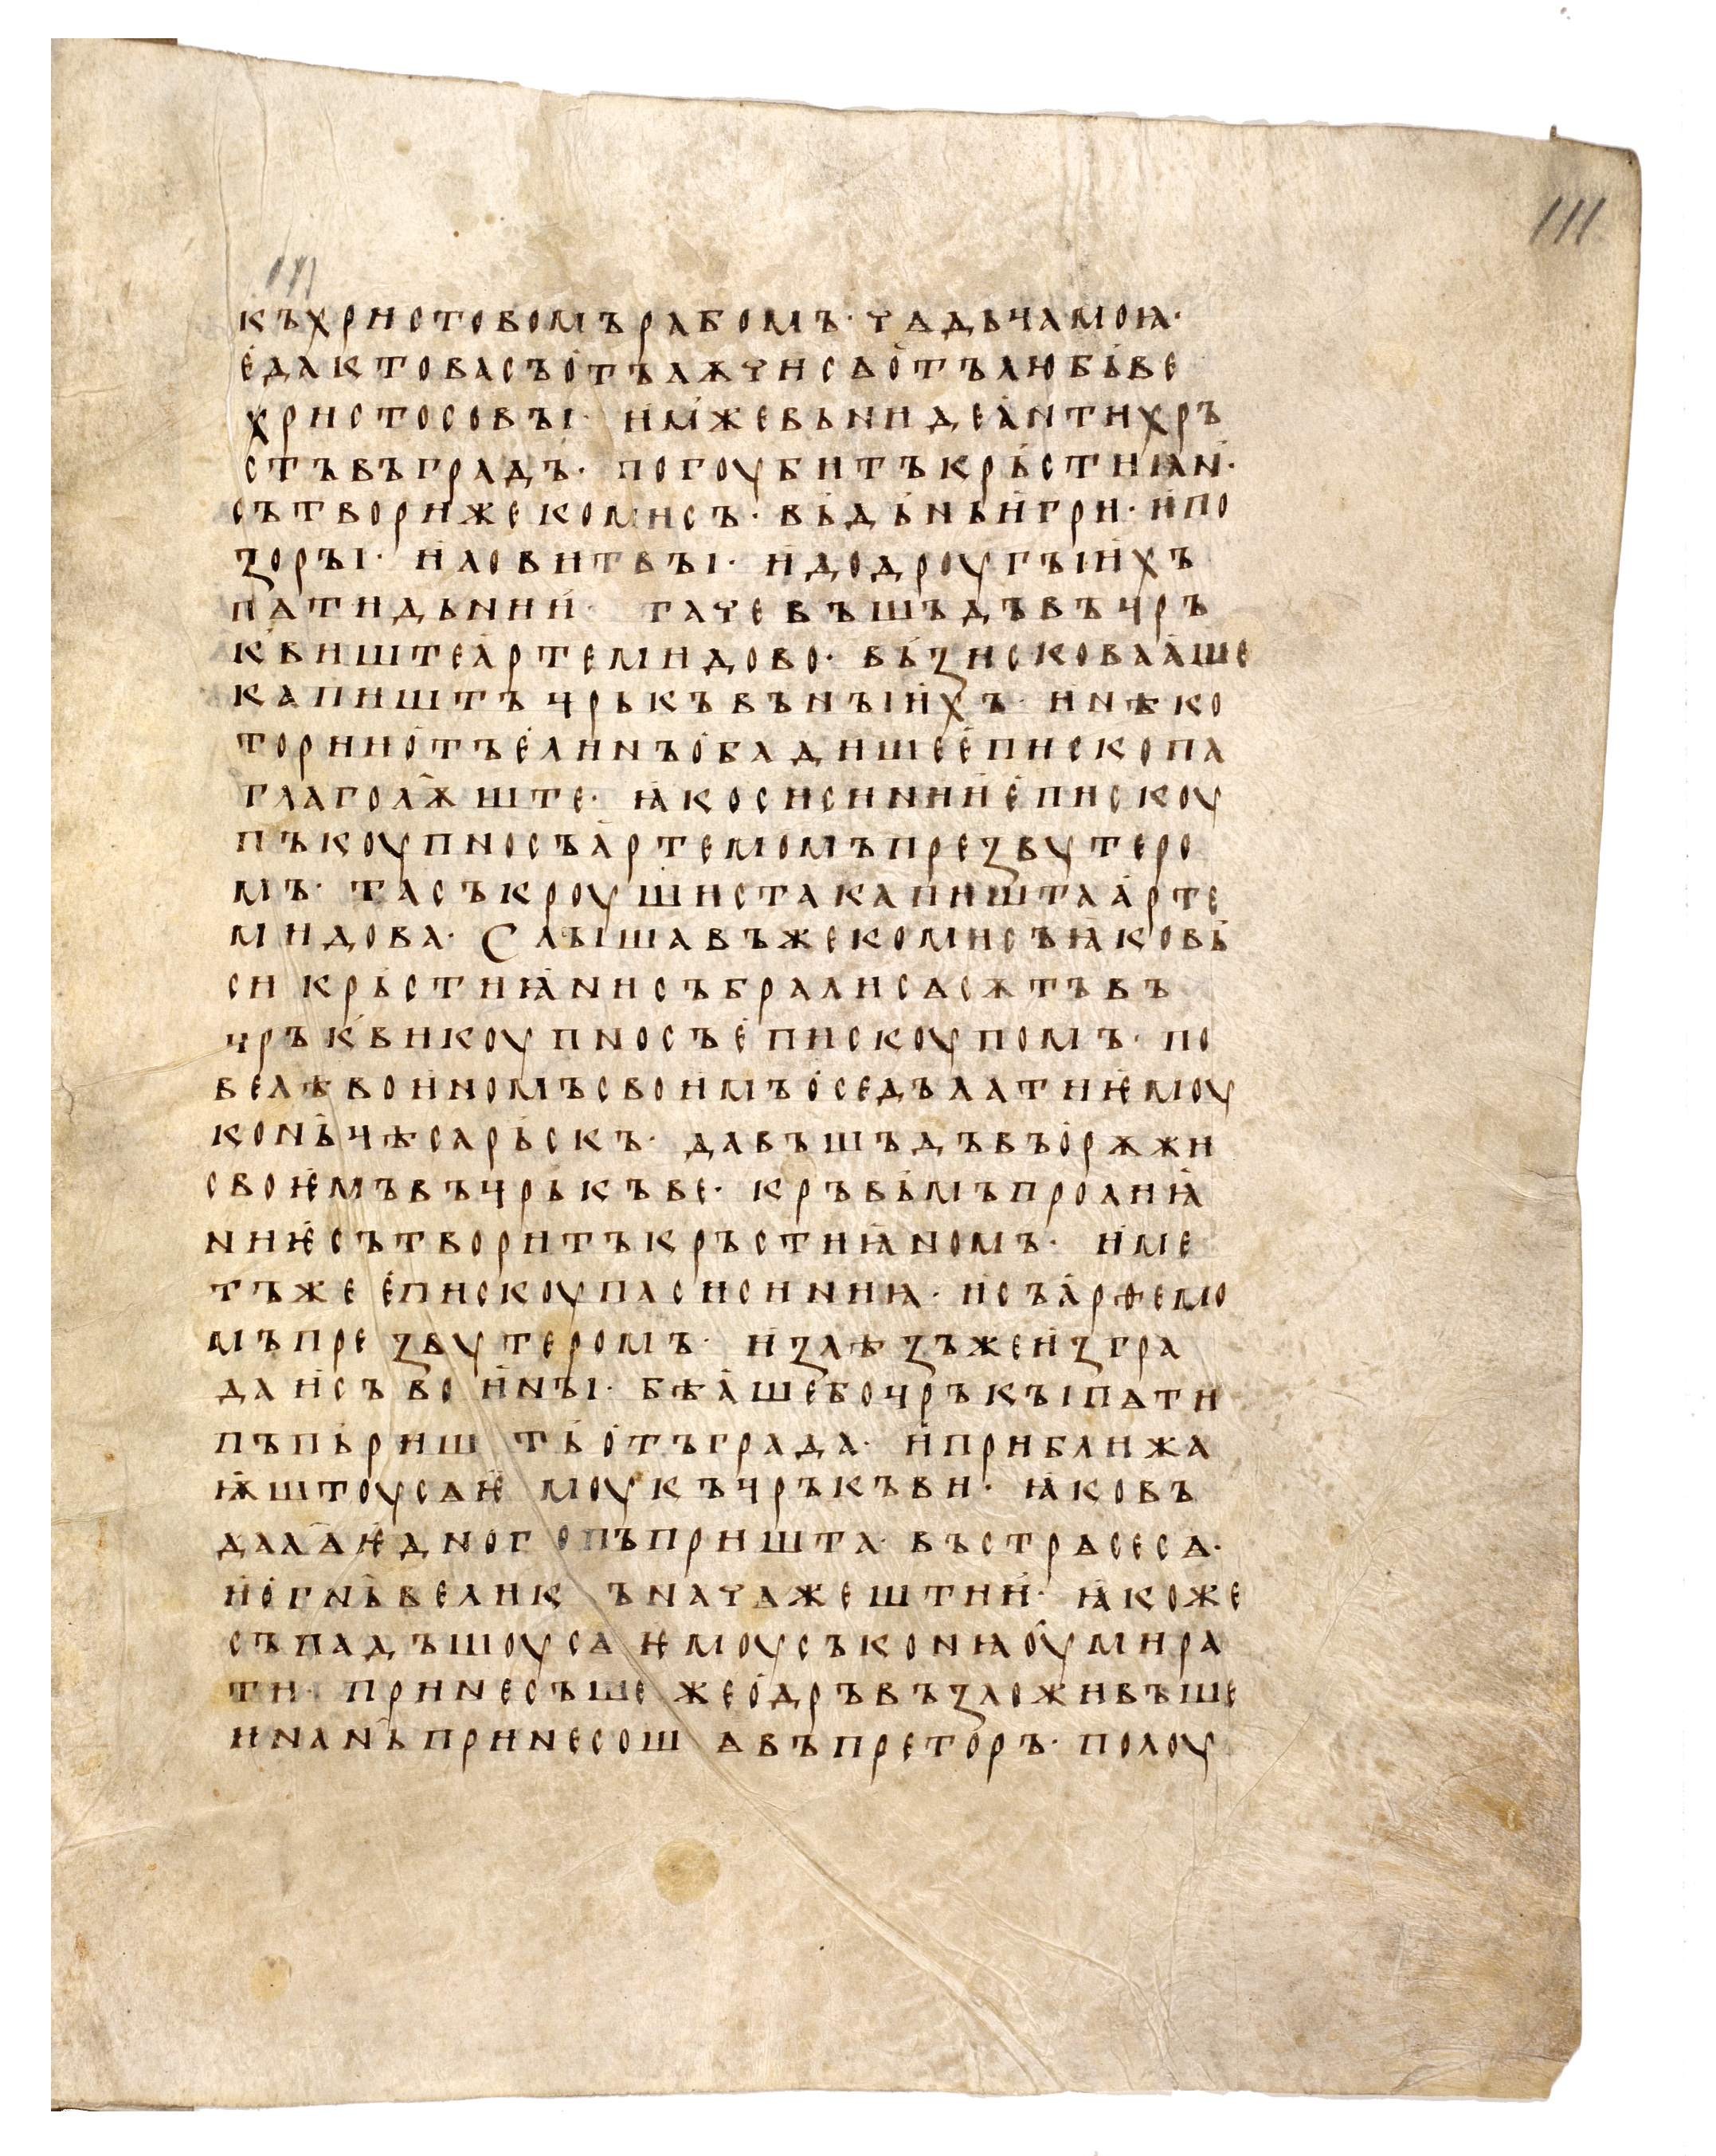 111
къхристовомърабомъ· чѧдьцамоꙗ·
е҅дактовасъо҅тълѫчисѧо҅тълюбъ҄ве
христосовъі· и҅мьжевьнидеа҅нтихръ
стъвъградъ· погоубитъкрь҄стиꙗ҅н҄·
сътворижекомисъ· въ҄дь҄ньи҅гри· и҅по
зоръі· и҅ловитвъі· и҅додроугъіи҅хъ
пѧтидьнии҅· тачевъшъдъвъцръ
к҄виштеа҅ртемидово· въ҄зисковаа҅ше
капиштъцрькъвънъіи҅хъ· и҅нѣко
ториио҅тъе҅линъо҅бадишѧе҅пископа
глагол҄ѭште· ꙗ҅косисинии҅е҅писқоу
пъкоупносъа҅ртемомъпрезвѵтеро
мъ· тасъкроушистакапиштаа҅рте
мидова· Слъішавъжекомисъꙗ҅ковь҄
сикрь҄стиꙗ҅нисъбралисѧсѫтъвъ
цръкъ҄викоупносъе҅пискоупомъ· по
велѣвои҅номъсвои҅мъо҅седълатиѥ҅моу
кон҄ьцѣсарь҄скъ· давъшъдъвъо҅рѫжи
своѥ҅мъвъцрькъве· кръвь҄мъпролиꙗ҅
ниѥ҅сътворитъкръстиꙗ҅номъ· и҅ме
тъжее҅пискоупасисиниꙗ· и҅съа҅рѳемо
мъпрезвѵтеромъ· и҅злѣзъжеи҅згра
даи҅съвои҅нъі· бѣа҅шебоцръкъіпѧти
пъпь҄риштьо҅тъграда· и҅приближа
ѭ҅штоусѧѥ҅моукъцръкъви· ꙗ҅ковъ
дал҄аѥ҅дногопъпришта· въстрѧсесѧ·
и҅о҅гн҄ьвеликъначѧжештии҅· ꙗ҅коже
съпадъшоусѧѥ҅моусъкон҄ꙗоу҅мира
ти· принесъшежео҅дръвъзложивъше
инан҄ьпринесошѧвъпреторъ· полоу